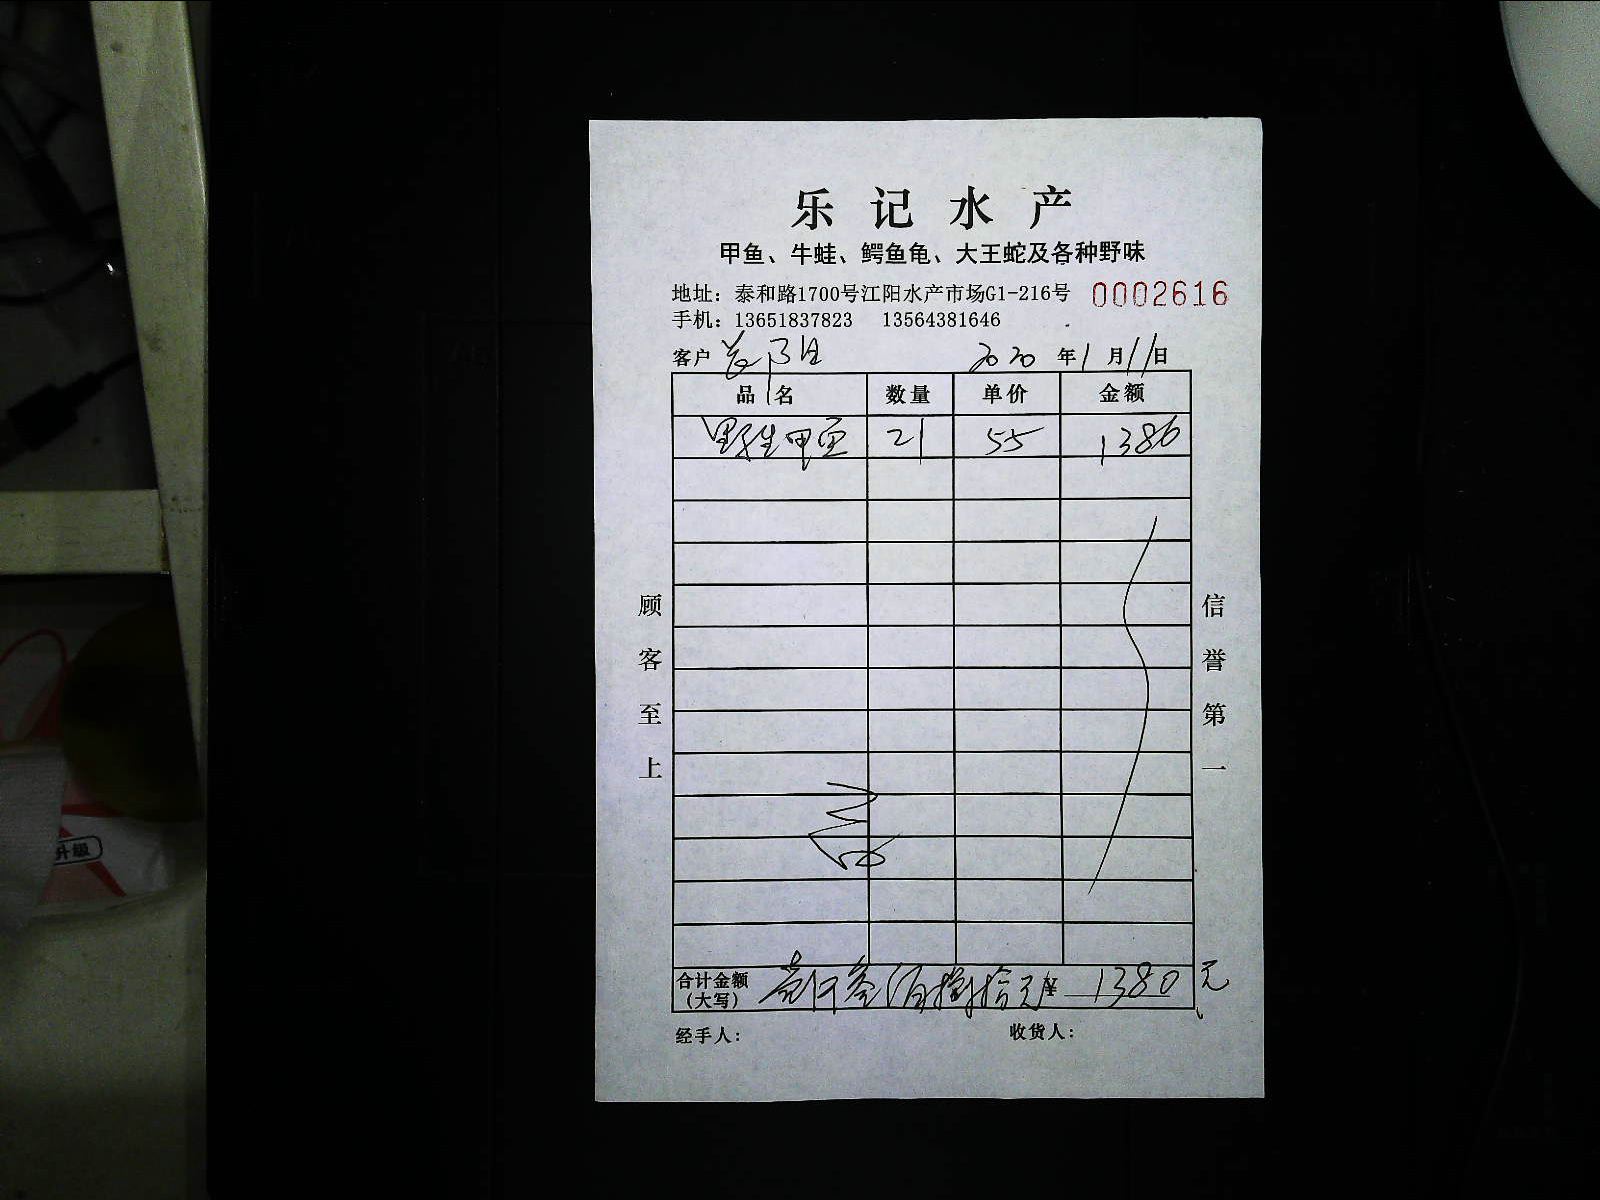 乐记水产
甲鱼、牛蛙、鳄鱼龟、大王蛇及各种野味
地址：泰和路1700号江阳水产市场G1-216号 0002616
手机：13651837823 13564381646
客户 2020年1月11日
品名 数量 单价 金额
野生甲鱼 21 55 1386
顾客至上
信誉第一
合计金额（大写） 壹仟叁佰捌拾元 ¥ 1380元
经手人： 收货人：
升級